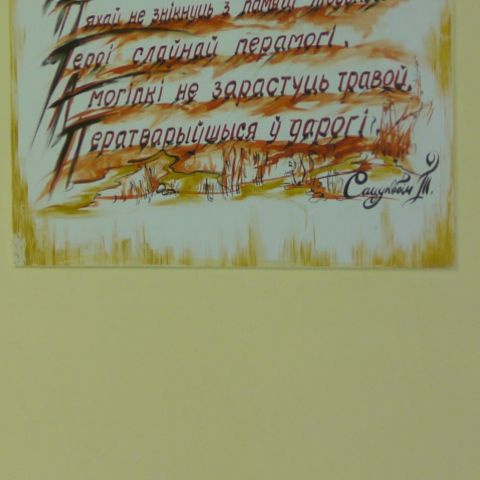 Няхай не знікнуць з памяці
Героі слаўнай перамогі,
А магілкі не зарастуць травой,
Ператварыўшыся ў дарогі.